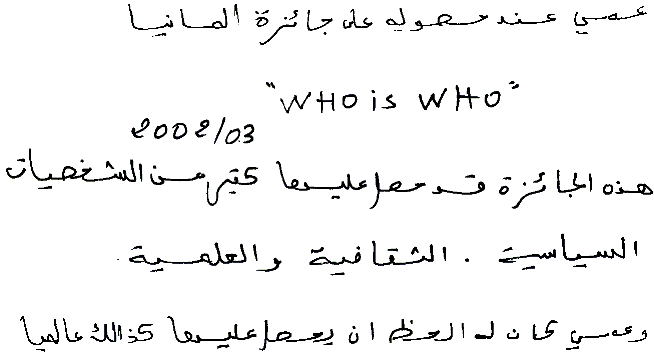 عمي عند حصوله على جائزة المانيا
"WHO is WHO"
2002/03
هذه الجائزة قد حصل عليها كثير من الشخصيات
السياسية . الثقافية والعلمية .
وعمي كان له الحظ ان يحصل عليها كذالك عالميا